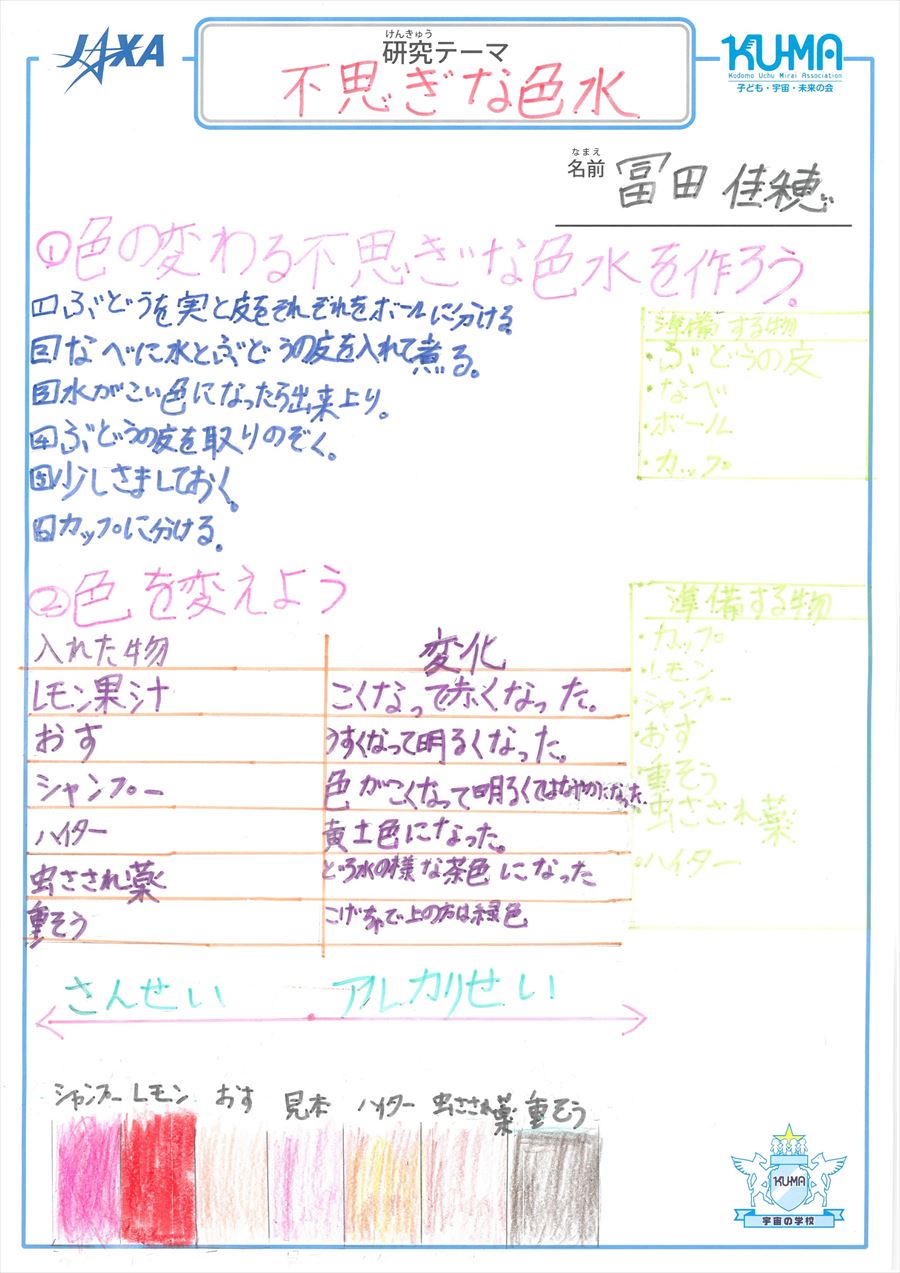 JAXA
けんきゅう
研究テーマ
不思ぎな色水
KU-MA
Kodomo Uchu Mirai Association
子ども・宇宙・未来の会
なまえ
名前 冨田 佳穂
①色の変わる不思ぎな色水を作ろう。
1 ぶどうを実と皮をそれぞれをボールに分ける。
2 なべに水とぶどうの皮を入れて煮る。
3 水がこい色になったら出来上り。
4 ぶどうの皮を取りのぞく。
5 少しさましておく。
6 カップに分ける。
準備する物
・ぶどうの皮
・なべ
・ボール
・カップ
②色を変えよう
入れた物 変化
レモン果汁 こくなって赤くなった。
おす うすくなって明るくなった。
シャンプー 色がこくなって明るくてはなやかになった。
ハイター 黄土色になった。
虫さされ薬 どろ水の様な茶色になった
重そう こげちゃで上の方は緑色
準備する物
・カップ
・レモン
・シャンプー
・おす
・重そう
・虫さされ薬
・ハイター
さんせい アルカリせい
シャンプー レモン おす 見本 ハイター 虫さされ薬 重そう
KU-MA
宇宙の学校